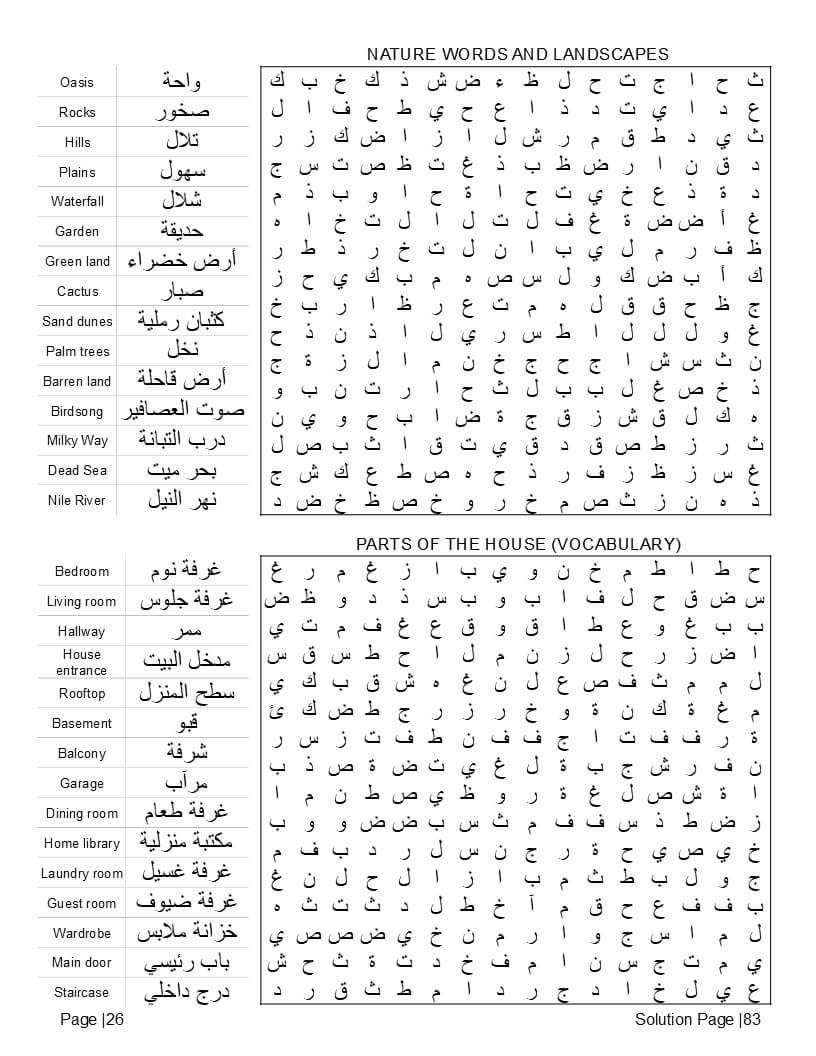 NATURE WORDS AND LANDSCAPES
Oasis واحة
Rocks صخور
Hills تلال
Plains سهول
Waterfall شلال
Garden حديقة
Green land أرض خضراء
Cactus صبار
Sand dunes كثبان رملية
Palm trees نخل
Barren land أرض قاحلة
Birdsong صوت العصافير
Milky Way درب التبانة
Dead Sea بحر ميت
Nile River نهر النيل
ث ح ا ج ت ح ل ظ ء ض ش ذ ك خ ب ك
ع د ا ي ت د ذ ا ع ح ي ط ح ف ا ل
ث ي د ط ق م ر ش ل ا ز ا ض ك ز ر
د ق ن ا ر ض ظ ب ذ غ ت ظ ص ت س ج
د ة ذ ع خ ي ت ح ا ة ح ا و ب ذ م
غ أ ض ض ة غ ف ل ت ل ا ل ت خ ا ه
ظ ف ر م ل ي ب ا ن ل ت خ ر ذ ط ر
ك أ ب ض ك و ل س ص ه م ب ك ي ح ز
ج ظ ح ق ق ل ه م ت ع ر ظ ا ر ب خ
غ و ل ل ل ا ط س ر ي ل ا ذ ن ذ ح
ن ث س ش ا ج ح ج خ ن م ا ل ز ة ج
ذ خ ص غ ل ب ب ل ث ح ا ر ت ن ب و
ه ك ل ق ش ز ق ج ة ض ا ب ح و ي ن
ث ر ز ط ص ق د ق ي ت ق ا ث ب ص ل
غ س ز ظ ز ف ر ذ ح ه ص ط ع ك ش ج
ذ ه ن ز ث ص م خ ر و خ ص ظ خ ض د
PARTS OF THE HOUSE (VOCABULARY)
Bedroom غرفة نوم
Living room غرفة جلوس
Hallway ممر
House entrance مدخل البيت
Rooftop سطح المنزل
Basement قبو
Balcony شرفة
Garage مرآب
Dining room غرفة طعام
Home library مكتبة منزلية
Laundry room غرفة غسيل
Guest room غرفة ضيوف
Wardrobe خزانة ملابس
Main door باب رئيسي
Staircase درج داخلي
ح ط ا ط م خ ن و ي ب ا ز غ م ر غ
س ض ق ح ل ف ا ب و ب س ذ د و ظ ض
ب ب غ و ع ط ا ق و ق ع غ ف م ت ي
ا ض ز ر ح ل ز ن م ل ا ح ط س ق س
ل م م ث ف ص ع ل ن غ ه ش ق ب ك ي
م غ ة ك ن ة و خ ر ز ر ج ط ض ك ئ
ة ر ف ف ت ا ج ف ف ن ط ف ت ز س ر
ن ف ر ش ج ب ة ل غ ي ت ض ة ص ذ ب
ا ة ش ص ل غ ة ر و ظ ي ص ط ن م ا
ز ض ط ذ س ف ف م ث س ب ض ض و و ب
خ ي ص ي ح ة ر ج ن س ل ر د ب ف م
ج و ل ب ط ث م ب ا ز ا ل ح ل ن غ
ب ف ف ع ح ق م آ خ ط ل د ث ت ث ه
ل م ا س ج و ا ر م ن خ ي ض ص ص ي
ي م ت ج س ن ا م ف خ د ت ة ث ح ش
ع ي ل خ ا د ج ر د ا م ط ث ق ر د
Page |26
Solution Page |83